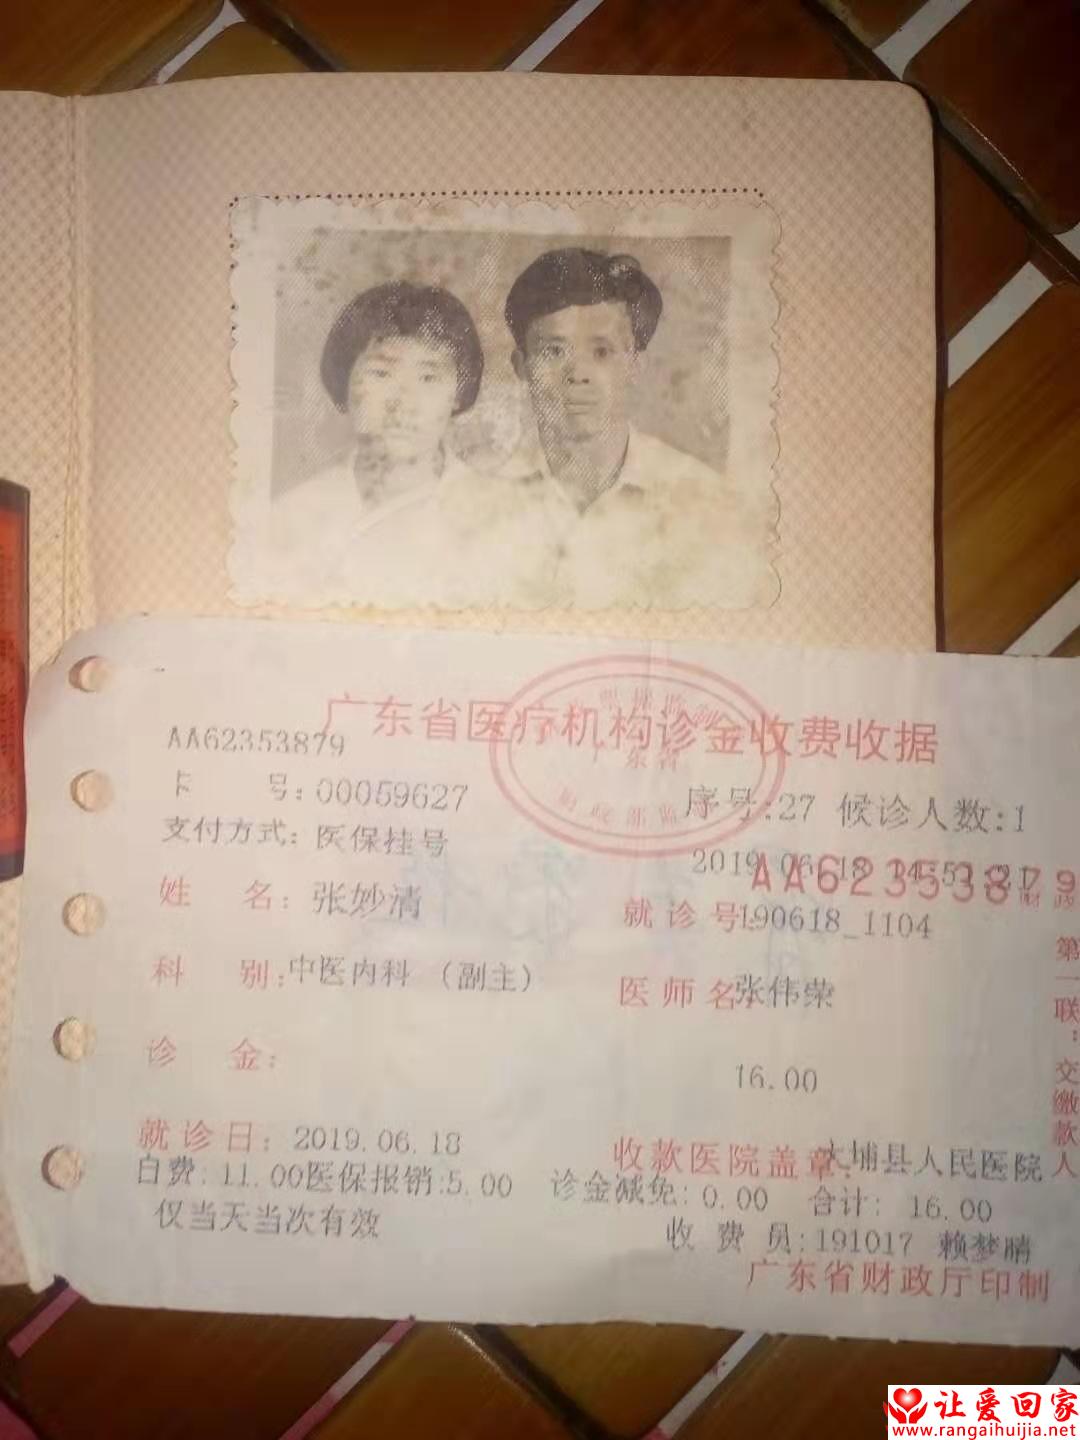 广东省医疗机构诊金收费收据
AA62353879
卡 号:00059627
序号:27 候诊人数:1
支付方式: 医保挂号
AA62353879
姓 名: 张妙清
就诊号:190618_1104
科 别:中医内科 (副主)
医师名:张伟荣
诊 金:
16.00
就诊日: 2019.06.18
收款医院盖章:大埔县人民医院
自费: 11.00医保报销:5.00 诊金减免: 0.00 合计: 16.00
仅当天当次有效
收 费 员:191017 赖梦晴
广东省财政厅印制
第一联:交缴款人
让爱回家
www.rangaihuijia.net